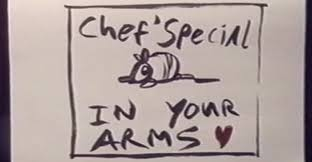 Chef'Special
IN YOUR
ARMS ♥